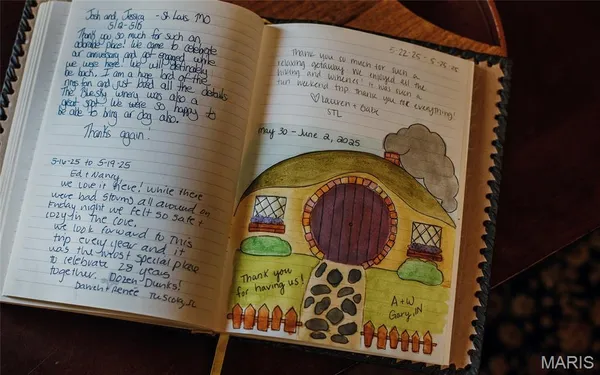 Josh and, Jessica - St. Louis MO
Thank you so much for such an
adorable place! We came to celebrate
our anniversary and got engaged while
we were here! We will definitely
be back. I am a huge lord of the
rings fan and just loved all the details.
The Blue Sky winery was also a
great spot! We were so happy to
be able to bring our dog also.
Thanks again!
5-16-25 to 5-19-25
Ed + Nancy,
We love it here! While there
were bad storms all around on
Friday night we felt so safe +
cozy in the Cove.
We look forward to this
trip every year and it
was the most special place
to celebrate 28 years
together. Dozen-Dunks!
Darren + Renee
5-22-25 - 5-25-25
Thank you so much for such a
relaxing getaway. We enjoyed all the
hiking and wineries! It was such a
fun weekend trip. Thank you for everything!
♡ Lauren + Gabe
STL
May 30 - June 2, 2025
Thank you
for having us!
A + W
Gary, IN
MARIS